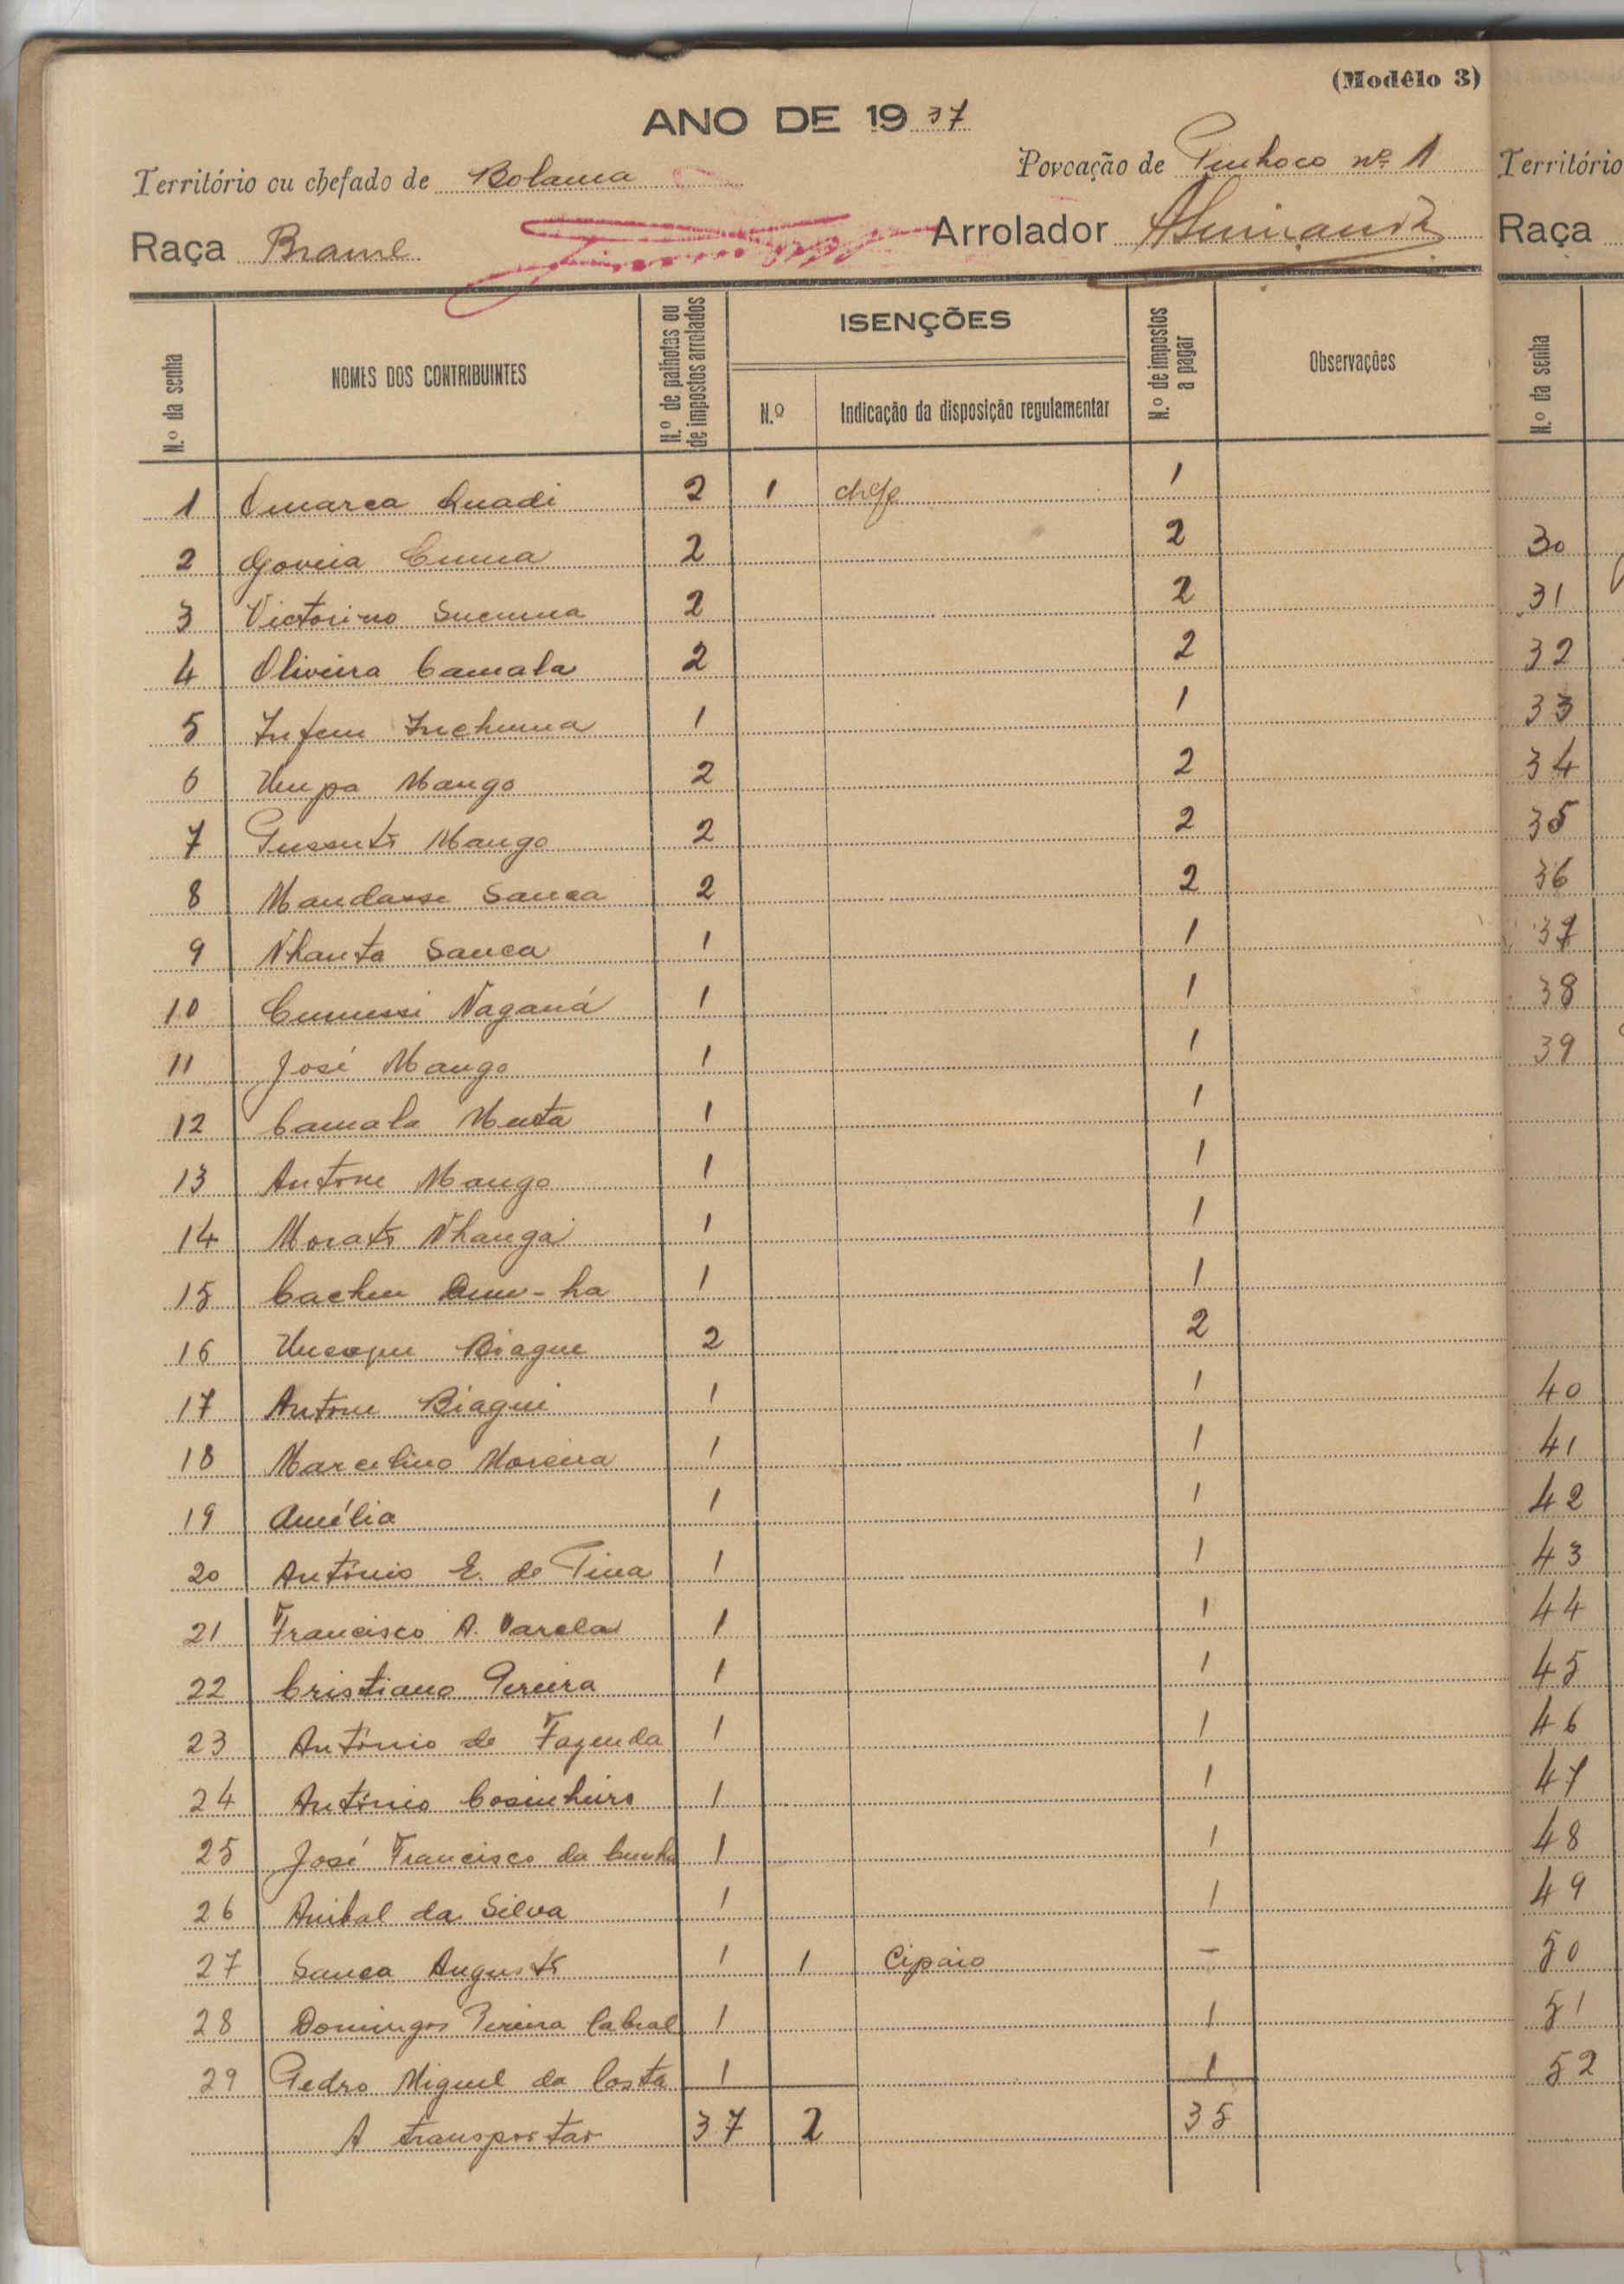 (Modêlo 3)
ANO DE 1937
Território ou chefado de Bolama Povoação de nº 1
Raça Brame Arrolador
N.º da senha NOMES DOS CONTRIBUINTES N.º de palhotas ou de impostos arrolados ISENÇÕES N.º de impostos a pagar Observações
N.º Indicação da disposição regulamentar
1 2 1 chefe 1
2 2 2
3 Victorino 2 2
4 Oliveira Camala 2 2
5 1 1
6 Mango 2 2
7 Mango 2 2
8 Sanca 2 2
9 Nhanta Sanca 1 1
10 Naganá 1 1
11 José Mango 1 1
12 Camala 1 1
13 Antone Mango 1 1
14 1 1
15 1 1
16 Biague 2 2
17 Antone Biague 1 1
18 Marcelino Moreira 1 1
19 Amélia 1 1
20 António E. de Pina 1 1
21 Francisco A. Varela 1 1
22 Cristiano Pereira 1 1
23 António de Fazenda 1 1
24 António Cosinheiro 1 1
25 José Francisco da Cunha 1 1
26 Anibal da Silva 1 1
27 Sanca Augusto 1 1 Cipaio -
28 Domingos Pereira Cabral 1 1
29 Pedro Miguel da Costa 1 1
A transportar 37 2 35
Território
Raça
N.º da senha
30
31
32
33
34
35
36
37
38
39
40
41
42
43
44
45
46
47
48
49
50
51
52